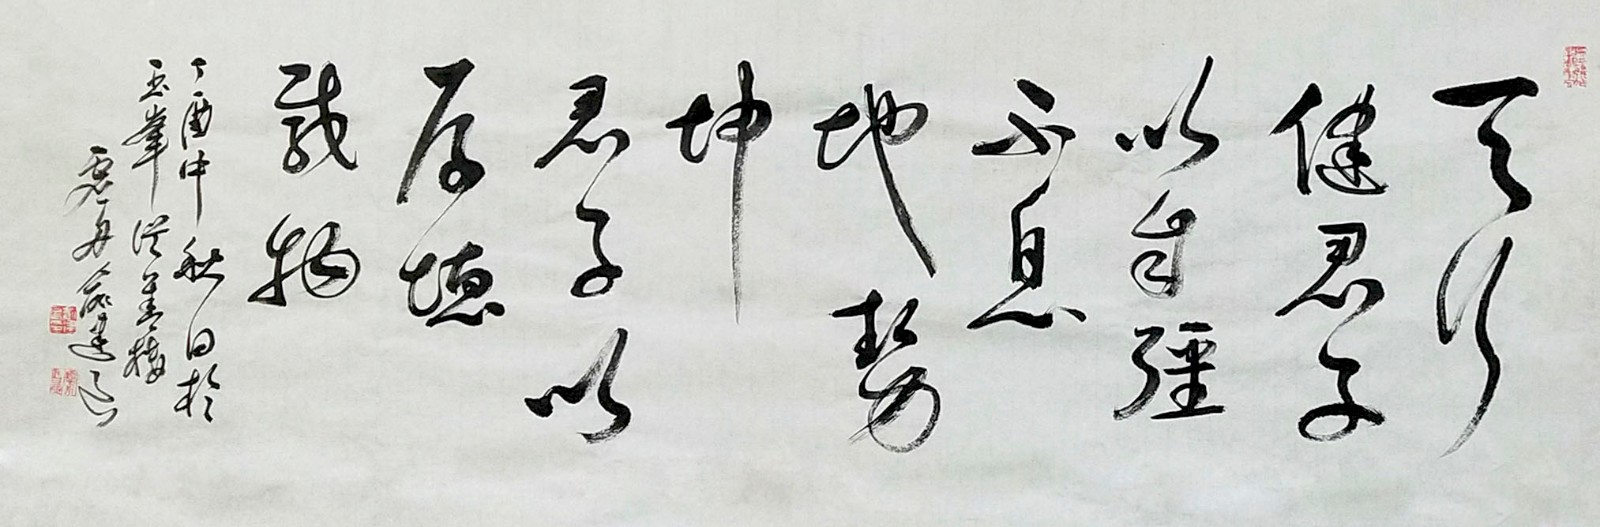 天行
健君子
以自疆
不息
地势
坤
君子以
厚德
载物
丁酉中秋日于
玉峯
虚舟